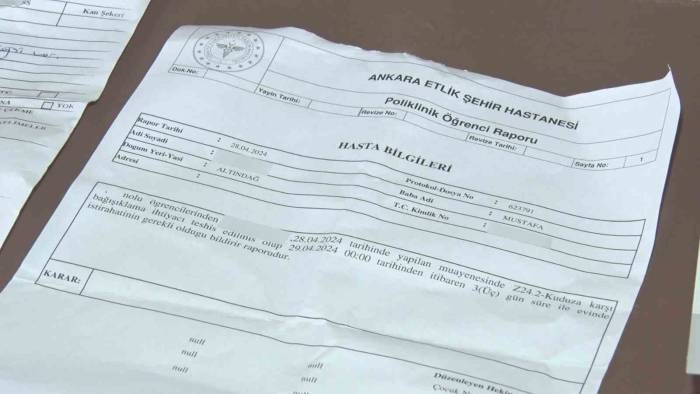 Kan Şekeri
YOK
ANKARA ETLİK ŞEHİR HASTANESİ
Poliklinik Öğrenci Raporu
Dok.No:
Yayin Tarihi:
Revize No:
Revize Tarihi:
Sayfa No:
1
HASTA BİLGİLERİ
Rapor Tarihi : 28.04.2024
Adi Soyadi :
Dogum Yeri-Yasi : ALTINDAĞ
Adresi :
Protokol-Dosya No : 623791
Baba Adi : MUSTAFA
T.C. Kimlik No :
nolu öğrencilerinden ,28.04.2024 tarihinde yapilan muayenesinde Z24.2-Kuduza karşı
bağışıklama İhtiyacı teshis edilmis olup 29.04.2024 00:00 tarihinden itibaren 3(Üç) gün süre ile evinde
istirahatinin gerekli oldugu bildirir raporudur.
KARAR:
null
null
null
null
null
Düzenleyen Hekim
Çocuk